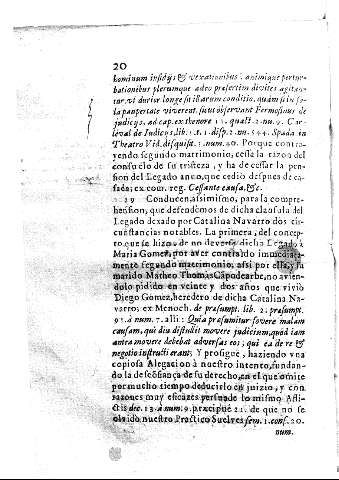 20
hominum insidijs & vexationibus, animique pertur-
bationibus plerumque adeo præsertim divites agitan-
tur, vt durior longe sit illarum conditio, quàm si in so-
la paupertate viverent, sicut observant Fermosinus de
judicijs, ad cap. ex thenore 11. quæst. 2. nu. 9. Car-
leval de Judicijs, lib. 1. tit. 1. disp. 2. nu. 544. Spada in
Theatro Vid. disquisit. 1. num. 20. Porque contra-
yendo segundo matrimonio, cessa la razon del
consuelo de su tristeza, y ha de cessar la pen-
sion del Legado anuo, que cediò despues de ca-
sada; ex com. reg. Cessante causa, &c.
39 Conducen, assimismo, para la compre-
hension, que defendemos de dicha clausula del
Legado dexado por Catalina Navarro dos cir-
cunstancias notables. La primera, del concep-
to que se hizo, de no deverse dicha Legado à
Maria Gomez, por aver contraîdo immediata-
mente segundo matrimonio, assi por ella, y su
marido Matheo Thomas Capdearbe, no avien-
dolo pidido en veinte y dos años que viviò
Diego Gomez, heredero de dicha Catalina Na-
varro; ex Menoch. de præsumpt. lib. 2. præsumpt.
91. à num. 7. alii: Quia præsumitur fovere malam
causam, qui diu distulit movere judicium, quod iam
antea movere debebat adversus eos, qui ea de re &
negotio instructi erant; Y prosigue, haziendo vna
copiosa Alegacion à nuestro intento, fundan-
do la desconfiança de su derecho, en el que omite
por mucho tiempo deducirlo en juizio, y con
razones muy eficaces persuade lo mismo Affli-
ctis dec. 13. à num. 9. præcipuè 21. de que no se
olvidò nuestro Practico Suelves sem. 1. cons. 20.
num.